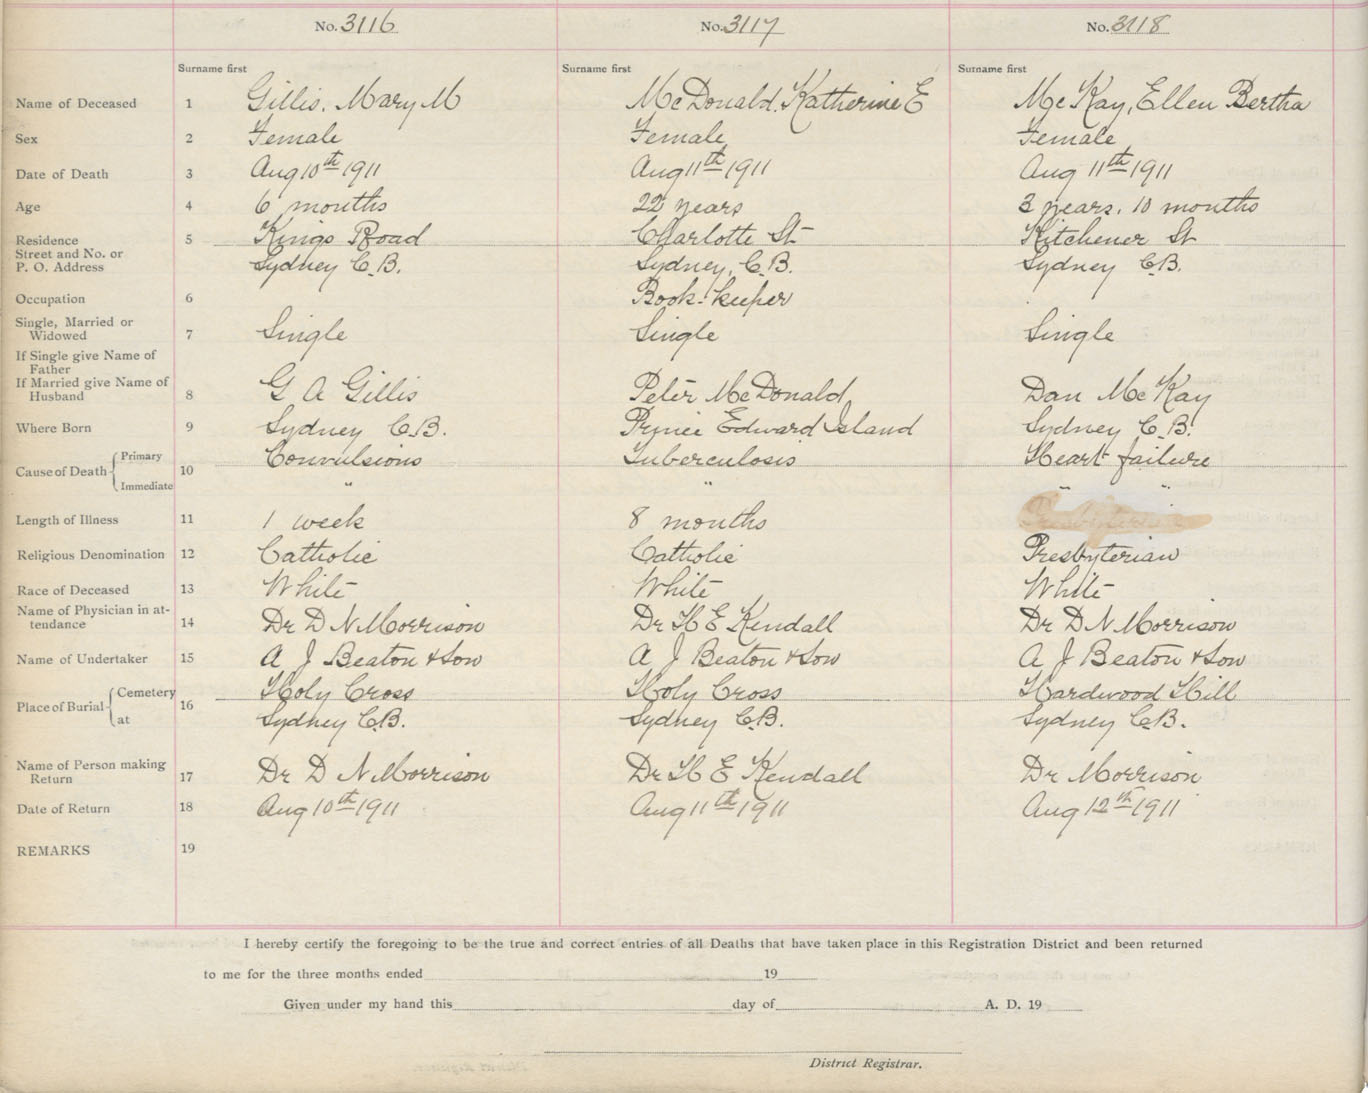 No. 3116 No. 3117 No. 3118
Surname first Surname first Surname first
Name of Deceased 1 Gillis, Mary M McDonald, Katherine E McKay, Ellen Bertha
Sex 2 Female Female Female
Date of Death 3 Aug 10th 1911 Aug 11th 1911 Aug 11th 1911
Age 4 6 months 22 years 3 years, 10 months
Residence 5 Kings Road Charlotte St Kitchener St
Street and No. or
P. O. Address Sydney C.B. Sydney, C.B. Sydney C.B.
Occupation 6 Book-keeper
Single, Married or
Widowed 7 Single Single Single
If Single give Name of
Father
If Married give Name of
Husband 8 G A Gillis Peter McDonald Dan McKay
Where Born 9 Sydney C.B. Prince Edward Island Sydney C.B.
Cause of Death { Primary 10 Convulsions Tuberculosis Heart failure
Immediate " " " "
Length of Illness 11 1 week 8 months Presbyterian
Religious Denomination 12 Catholic Catholic Presbyterian
Race of Deceased 13 White White White
Name of Physician in at-
tendance 14 Dr D N Morrison Dr H E Kendall Dr D N Morrison
Name of Undertaker 15 A J Beaton & Son A J Beaton & Son A J Beaton & Son
Place of Burial { Cemetery 16 Holy Cross Holy Cross Hardwood Hill
at Sydney C.B. Sydney C.B. Sydney C.B.
Name of Person making
Return 17 Dr D N Morrison Dr H E Kendall Dr Morrison
Date of Return 18 Aug 10th 1911 Aug 11th 1911 Aug 12th 1911
REMARKS 19
I hereby certify the foregoing to be the true and correct entries of all Deaths that have taken place in this Registration District and been returned
to me for the three months ended 19
Given under my hand this day of A. D. 19
District Registrar.